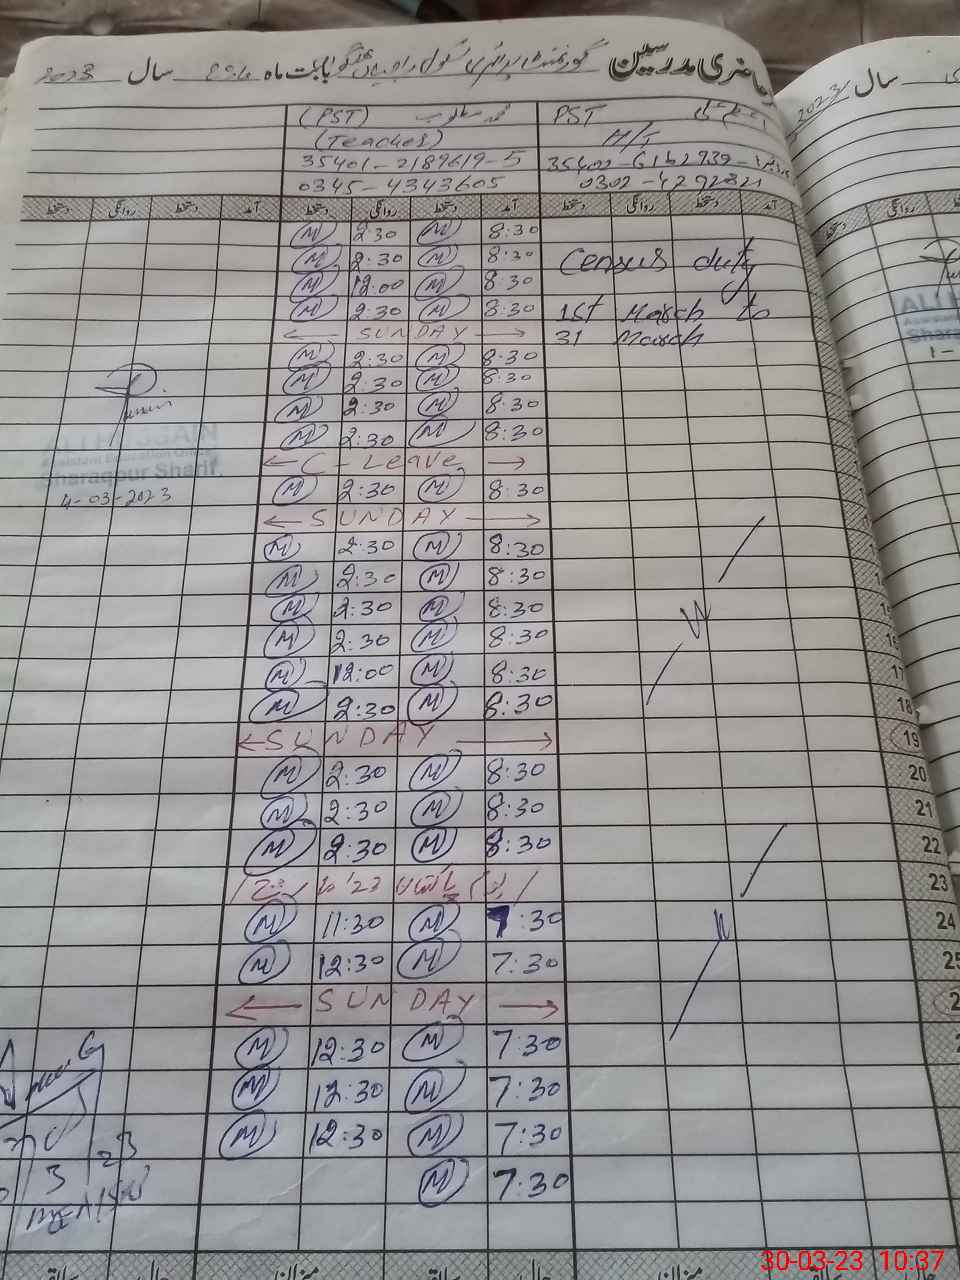 حاضری مدرسین گورنمنٹ پرائمری سکول بابت ماہ سال 2023
سال 2023
(PST) PST
(Teacher) H/T
35401-2189619-5
0345-4343605 0302-4292321
دستخط روانگی دستخط آمد دستخط روانگی دستخط آمد دستخط روانگی دستخط آمد
M 2:30 M 8:30
M 2:30 M 8:30 Census duty
M 12:00 M 8:30
M 2:30 M 8:30 1st March to
← SUNDAY → 31 March
M 2:30 M 8:30
M 2:30 M 8:30
M 2:30 M 8:30
M 2:30 M 8:30
ALI HUSSAIN
Assistant Education Officer
← C-Leave →
Sharaqpur Sharif.
M 2:30 M 8:30
4-03-2023
← SUNDAY →
M 2:30 M 8:30
M 2:30 M 8:30
M 2:30 M 8:30
M 2:30 M 8:30
M 12:00 M 8:30 17
M 2:30 M 8:30 18
← SUNDAY → 19
M 2:30 M 8:30 20
M 2:30 M 8:30 21
M 2:30 M 8:30 22
23
M 11:30 M 7:30 24
M 12:30 M 7:30 25
← SUNDAY →
M 12:30 M 7:30
M 12:30 M 7:30
M 12:30 M 7:30
M 7:30
3 23
میزان
30-03-23 10:37